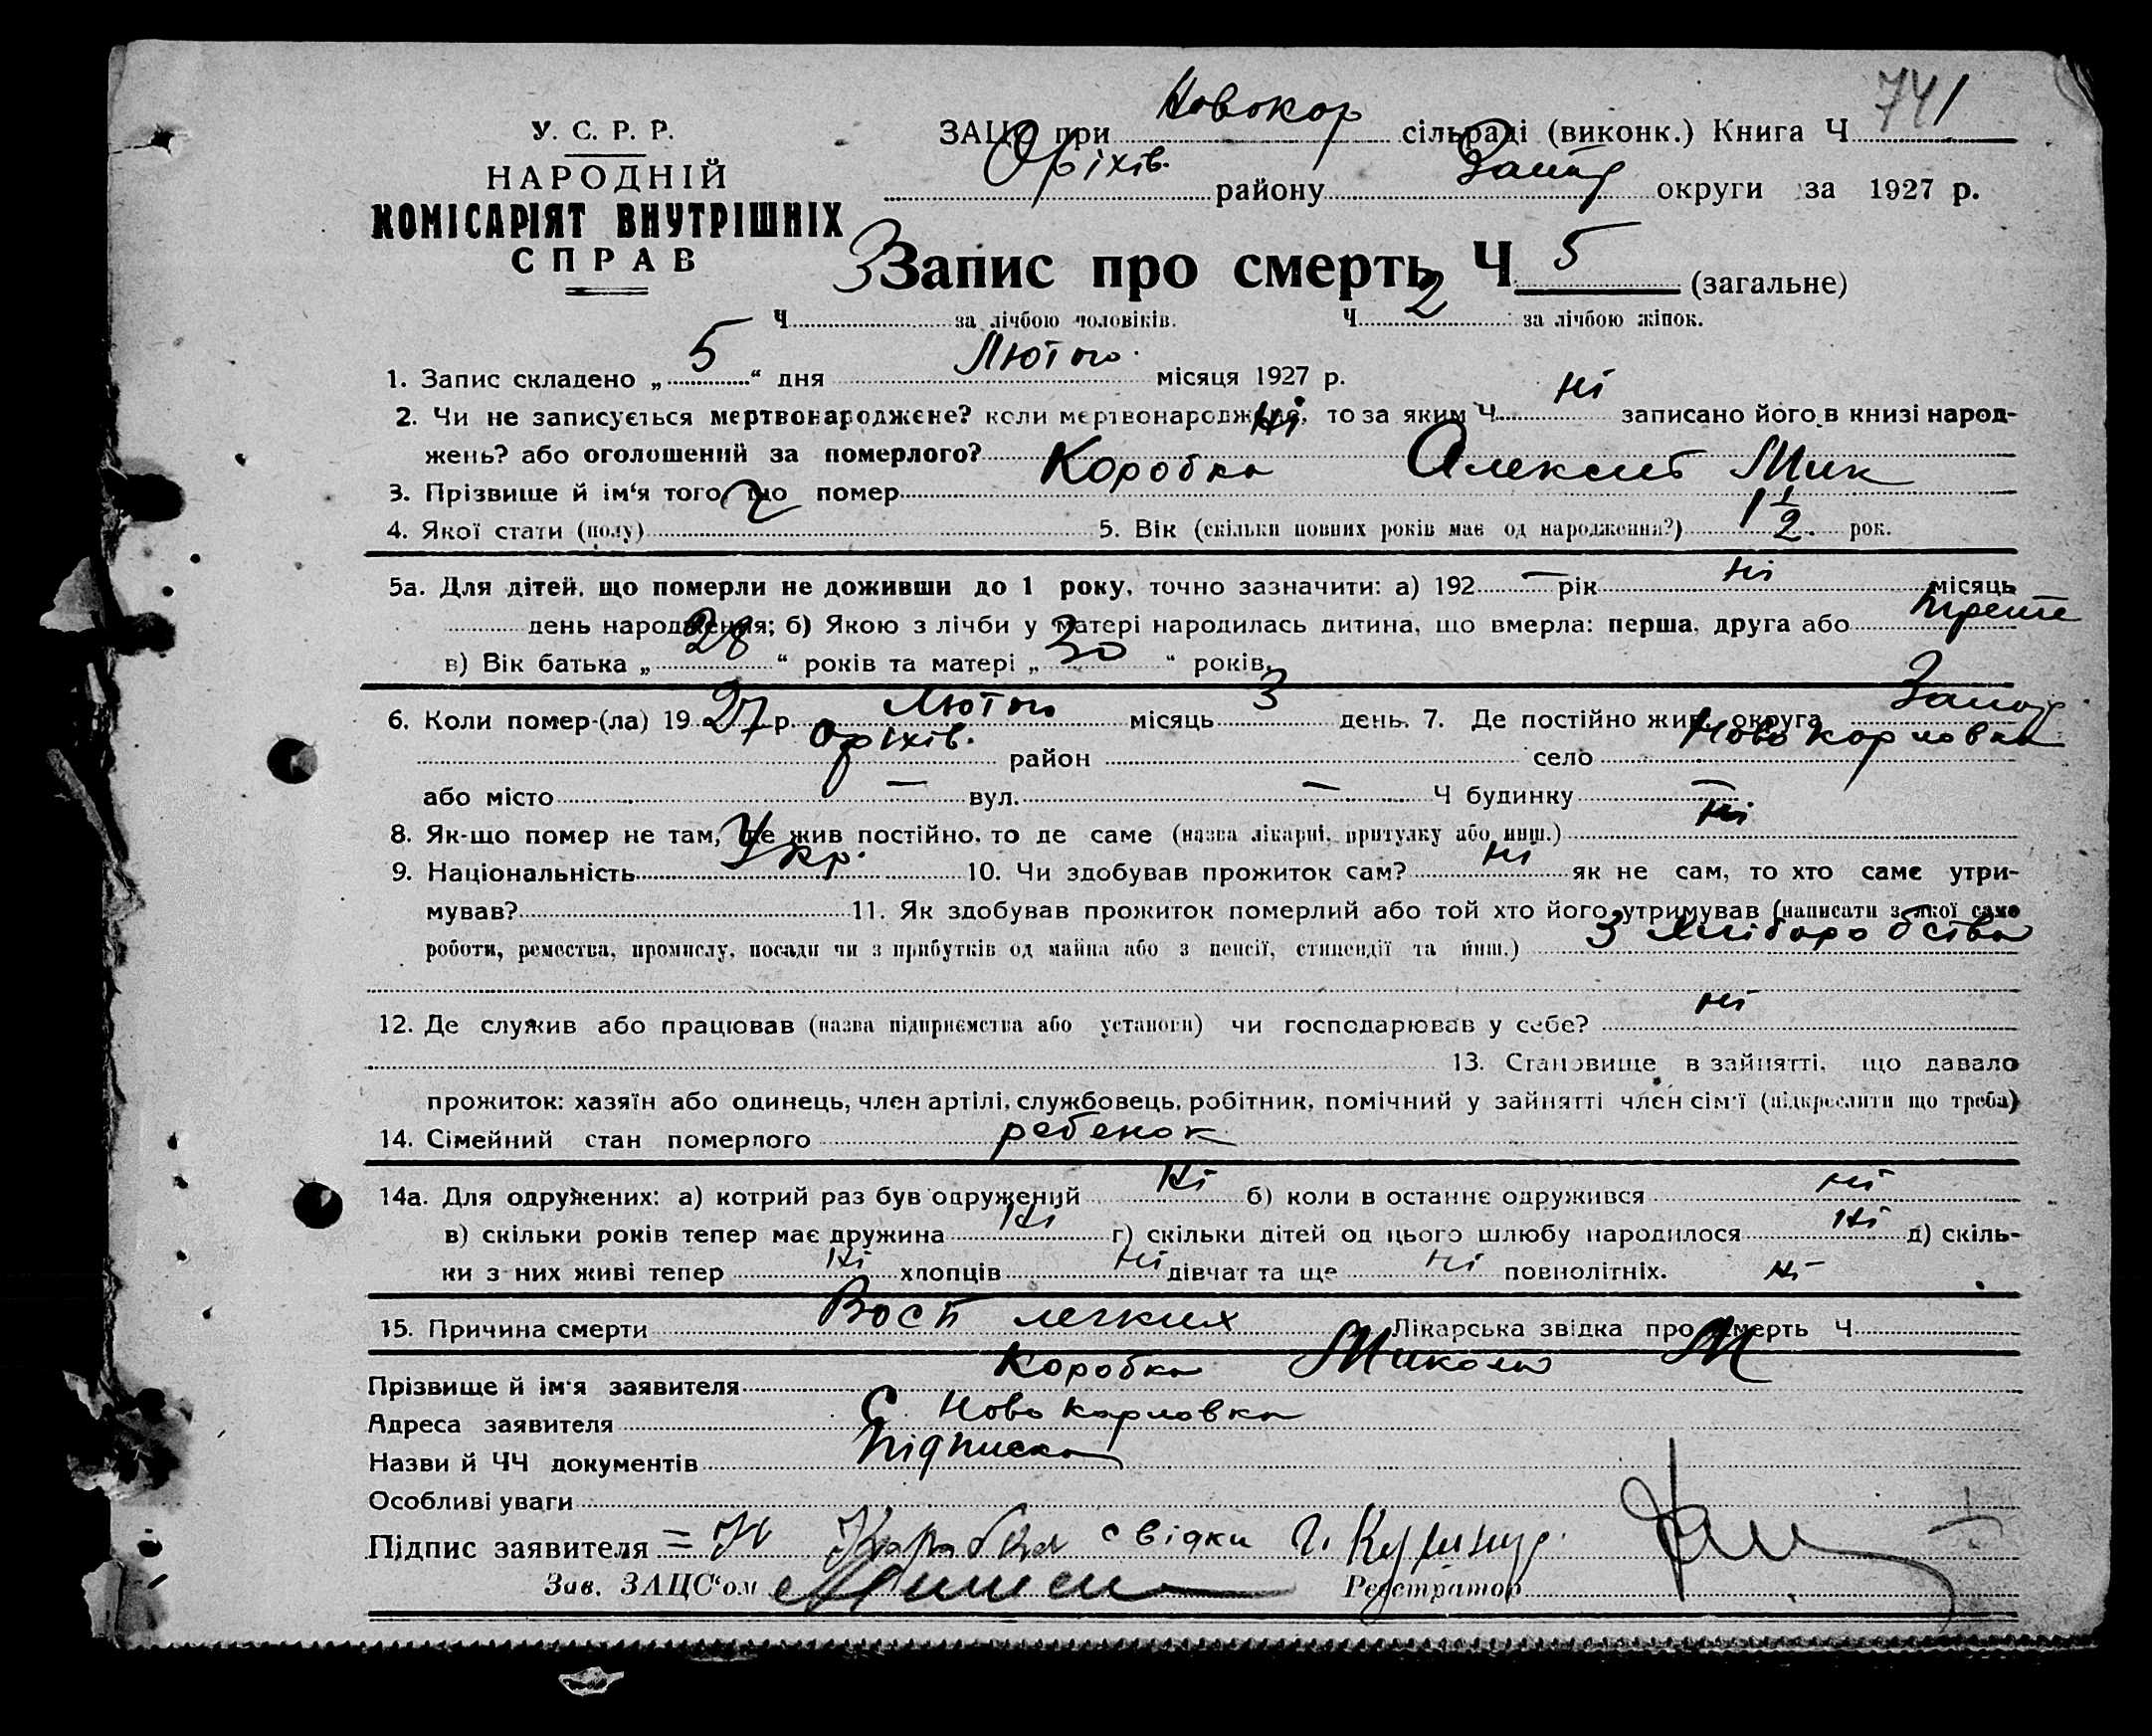 741
У. С. Р. Р.
НАРОДНІЙ
КОМІСАРІЯТ ВНУТРІШНІХ
СПРАВ
ЗАЦС при Новокар сільраді (виконк.) Книга Ч
Оріхів. району Запор округи за 1927 р.
Запис про смерть Ч 5 (загальне)
Ч 3 за лічбою чоловіків. Ч 2 за лічбою жінок.
1. Запис складено „ 5 “ дня Лютого місяця 1927 р.
2. Чи не записується мертвонароджене? коли мертвонароджене, то за яким Ч ні записано його в книзі народ-
жень? або оголошений за померлого? ні
3. Прізвище й ім‘я того, що помер Коробка Алексій Мик
4. Якої стати (полу) Ч 5. Вік (скільки повних років має од народження?) 1 1/2 рок.
5а. Для дітей, що померли не доживши до 1 року, точно зазначити: а) 192 — рік ні місяць
день народження; б) Якою з лічби у матері народилась дитина, що вмерла: перша, друга або третє
в) Вік батька „ 28 “ років та матері „ 30 “ років.
6. Коли помер-(ла) 19 27 р. Лютого місяць 3 день. 7. Де постійно жив округа Запор
Оріхів. район село Ново Карловка
або місто — вул. — Ч будинку —
8. Як-що помер не там, де жив постійно, то де саме (назва лікарні, притулку або инш.) ні
9. Національність Укр. 10. Чи здобував прожиток сам? ні як не сам, то хто саме утри-
мував? 11. Як здобував прожиток померлий або той хто його утримував (написати з якої саме
роботи, ремества, промислу, посади чи з прибутків од майна або з пенсії, стипендії та инш.) З хліборобства
12. Де служив або працював (назва підприємства або установи) чи господарював у себе? ні
13. Становище в зайнятті, що давало
прожиток: хазяїн або одинець, член артілі, службовець, робітник, помічний у зайнятті член сім‘ї (підкреслити що треба)
14. Сімейний стан померлого ребенок
14а. Для одружених: а) котрий раз був одружений ні б) коли в останнє одружився ні
в) скільки років тепер має дружина ні г) скільки дітей од цього шлюбу народилося ні д) скіль-
ки з них живі тепер ні хлопців ні дівчат та ще ні повнолітніх. ні
15. Причина смерти Восп легких Лікарська звідка про смерть Ч
Прізвище й ім‘я заявителя Коробка Микола М
Адреса заявителя С. Ново Карловка
Назви й ЧЧ документів підписка
Особливі уваги
Підпис заявителя = Н Коробка свідки
Зав. ЗАЦС‘ом Реєстратор